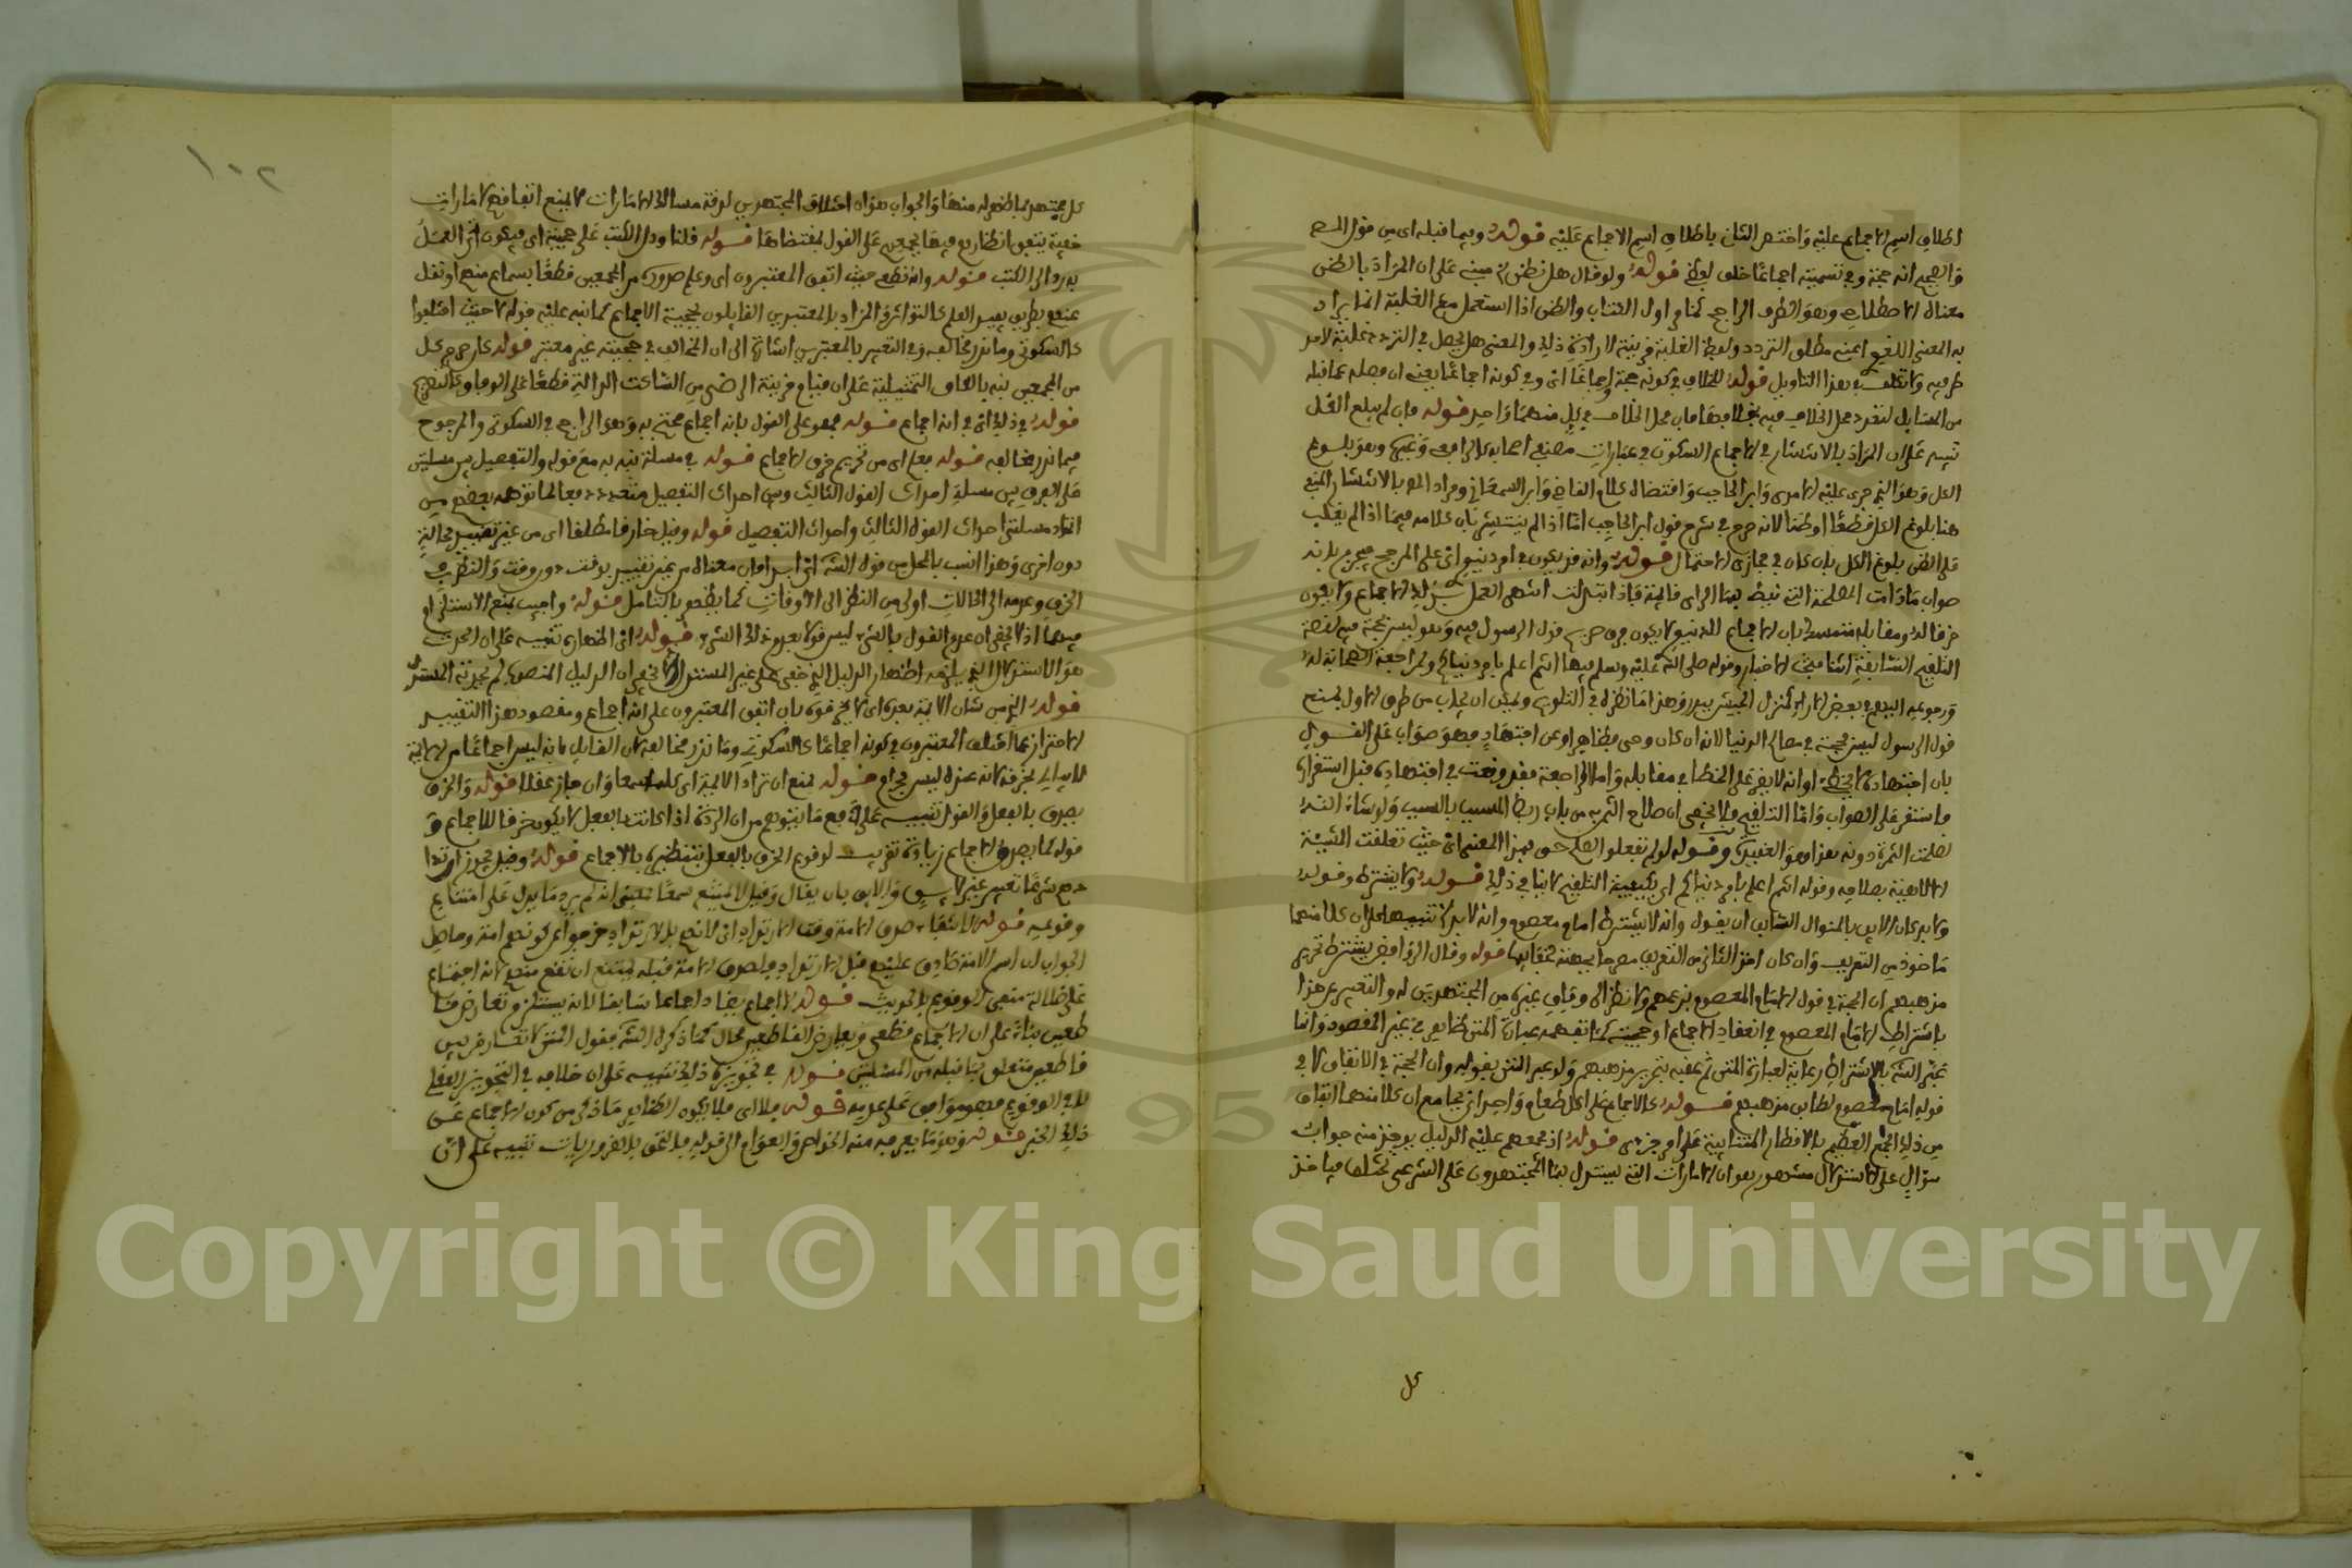 اطلاق اسم الاجماع عليه واختصر الثاني باطلاق اسم الاجماع عليه قوله وفيما قبله اي من قول المص
والصحيح انه حجة وفي تسميته اجماعا خلف لفظي قوله ولو قال هل نظن مبني على ان المراد بالظن
معناه الاصطلاحي وهو الطرف الراجح كما في اول الكتاب والظن اذا استعمل مع الغلبة انما يراد
به المعنى اللغوي اعني مطلق التردد ولفظ الغلبة قرينة لارادة ذلك والمعنى هل يحصل في التردد غلبة لاحد
طرفيه ولا تكلف في هذا التاويل قوله للخلاف في كونه حجة واجماعا اي وفي كونه اجماعا يعني ان فصله عما قبله
من المسايل لتعدد محل الخلاف فيه بخلافها فان محل الخلاف في كل منهما واحد قوله فان لم يبلغ الكل
تنبيه على ان المراد بالانتشار في الاجماع السكوتي في عبارات اصحابه كالرافعي وغيره وهو بلوغ
الكل وهو الذي جرى عليه الامدي وابن الحاجب واقتضاه كلام القاضي وابن السمعاني ومراد المص بالانتشار المنفي
هنا بلوغ الكل قطعا او ظنا لانه صرح في شرح قول ابن الحاجب اما اذا لم ينتشر بان كلامه فيما اذا لم يغلب
على الظن بلوغ الكل بان كان في مجاري الاحتمال قوله وانه قد يكون في امر دنيوي اي على المرجح فيجزم بانه
صواب ما دامت المصلحة التي نيط بها الراي قايمة فاذا تبدلت انتهى العمل بذلك الاجماع ولا يكون
خرقا له ومقابله متمسك بان الاجماع الدنيوي لا يكون فوق صريح قول الرسول فيه وهو ليس بحجة فيه لقصة
التلقيح السابقة اثنا مبحث الاخبار وقوله صلى الله عليه وسلم فيها انتم اعلم بامر دنياكم ولمراجعة الصحابة له
ورجوعه اليهم في بعض الاراء كمنزل الجيش ببدر وهذا ما نظر له في التلويح ويمكن ان يجاب من طرف الاول بمنع
قول الرسول ليس حجة في مصالح الدنيا لانه ان كان وحي فظاهر او عن اجتهاد فهو صواب على القول
بان اجتهاده لا يخطئ او انه لا يقر على الخطا في مقابله واما المراجعة فقد وقعت في اجتهاده قبل استقراره
فاستقر على الصواب واما التلقيح فلا يخفى ان صلاح الثمر به من باب ربط المسبب بالسبب ولو شاء الله
لصلحت الثمرة دونه هذا هو العقيدة وقوله لو لم تفعلوا لصلح حق بهذا المعنى اي حيث تعلقت المشيئة
الالهية بصلاحه وقوله انتم اعلم بامر دنياكم اي بكيفية التلقيح لا ينافي ذلك قوله ولا يشترط وقوله
ولا بد كان الاليق بالمنوال السابق ان يقول وانه لا يشترط امام معصوم وانه لا بد له تنبيها على ان كلا منهما
ماخوذ من التعريف وان كان اخذ الثاني من التعريف مصرحا بجهته لخفايها قوله وقال الروافض يشترط تحرير
مذهبهم ان الحجة في قول الامام المعصوم بزعمهم ولا نظر الى وفاق غيره من المجتهدين له والتعبير عن هذا
باشتراط الامام المعصوم في انعقاد الاجماع او حجيته كما تفهمه عبارة المتن ظاهر في غير المقصود وانما
عبر الشرح بالاشتراط رعاية لعبارة المتن ثم عقبه بتحرير مذهبهم ولو عبر المتن بقوله وان الحجة في الاتفاق لا في
قول امام معصوم لطابق مذهبهم قوله كالاجماع على اكل طعام واحد اي بجامع ان كلا منهما اتفاق
من ذلك الجمع العظيم بالافطار المتباينة على امر جزئي قوله اذ مجمعهم عليه الدليل يوخذ منه جواب
سؤال على الاستدلال مشهور هو ان الامارات التي يستدل بها المجتهدون على الشرعي يختلف فياخذ
كل
١٠٢
كل مجتهد بما ظهر له منها والجواب هو ان اختلاف المجتهدين لدقة مسالك الامارات لا يمنع اتفاقهم لامارات
خفية يتفق انظارهم فيها فجمعهم على القول بمقتضاها قوله قلنا ودل الكتب على حجيته اي فيكون اثر العمل
به رد الى الكتب قوله وانه قطعي حيث اتفق المعتبرون اي وعلم صدوره من المجمعين قطعا بسماع منهم او نقل
عنهم بطريق يفيد العلم كالتواتر والمراد بالمعتبرين القايلون بحجية الاجماع كما نبه عليه قوله لا حيث اختلفوا
كالسكوتي وما ندر مخالفه وفي التعبير بالمعتبرين اشارة الى ان المخالف في حجيته غير معتبر قوله كان صرح كل
من المجمعين نبه بالكاف التمثيلية على ان قيام قرينة الرضى من الساكت الدالة قطعا على الوفاق كالتصريح
قوله في ذلك اي في انه اجماع قوله فهو على القول بانه اجماع محتج به وهو الراجح في السكوتي والمرجوح
فيما ندر مخالفه قوله فعلم اي من تحريم خرق الاجماع قوله في مسئلة نبه به مع قوله والتفصيل بين مسئلتين
على الفرق بين مسئلة احداث القول الثالث وبين احداث التفصيل دفعا لما توهمه بعضهم من
اتحاد مسئلتي احداث القول الثالث واحداث التفصيل قوله وقيل خارقا مطلقا اي من غير تقييد بحالة
دون اخرى وهذا انسب بالمحل من قول الشرح اي ابدا فان معناه من غير تقييد بوقت دون وقت والنظر في
الخرق وعدمه الى الحالات اولى من النظر الى الاوقات كما يظهر بالتامل قوله واجيب بمنع الاستلزام
فيهما اذ لا يخفى ان عدم القول بالشيء ليس قولا بعدم ذلك الشيء قوله اي اظهاره تنبيه على ان المحدث
هو الاستدلال الذي يلزمه اظهار الدليل الذي خفي على غير المستدل اذ لا يخفى ان الدليل المنصوص لم يحدثه المستدل
قوله الذي من شان الائمة بعده اي لا يخرقوه بان اتفق المعتبرون على انه اجماع ومقصود هذا التقييد
الاحتراز عما اختلف المعتبرون في كونه اجماعا كالسكوتي وما ندر مخالفه لان القايل بانه ليس اجماعا من الائمة
لا يبالي بخرقه لانه عنده ليس بحرام قوله يمنع ان ترتد الامة اي كلها سمعا وان جاز عقلا قوله والخرق
يصدق بالفعل والقول تنبيه على دفع ما يتوهم من ان الردة اذا كانت بالفعل لا يكون خرقا للاجماع و
قوله كما يصدق الاجماع زيادة تقريب لوقوع الخرق بالفعل بتنظيره بالاجماع قوله وقيل يجوز ارتدا
دهم شرعا تعبير غير لايق والاليق بان يقال وقيل لا يمتنع سمعا بمعنى انه لم يرد ما يدل على امتناع
وقوعه قوله لانتفاء صدق الامة وقت الارتداد اي لانهم بالارتداد خرجوا عن كونهم امة وحاصل
الجواب ان اسم الامة صادق عليهم قبل الارتداد فلصدق الامة قبله يمتنع ان تقع منهم لانه اجتماع
على ضلالة منفي الوقوع بالحديث قوله لا اجماع يضاد اجماعا سابقا لانه يستلزم تعارض قا
طعين بناء على ان الاجماع قطعي وتعارض القاطعين محال كما ذكره الشرح بقول المتن لا تعارض بين
قاطعين متعلق بما قبله من المسئلتين قوله في تجويزه ذلك تنبيه على ان خلافه في التجويز العقلي
لا في الوقوع فهو موافق على عدمه قوله فلا اي فلا يكون الظاهر ما ذكر من كون الاجماع عن
ذلك الخبر قوله وهو ما يعرفه منه الخواص والعوام الى قوله فالتحق بالضروريات تنبيه على ان
Copyright © King Saud University
95